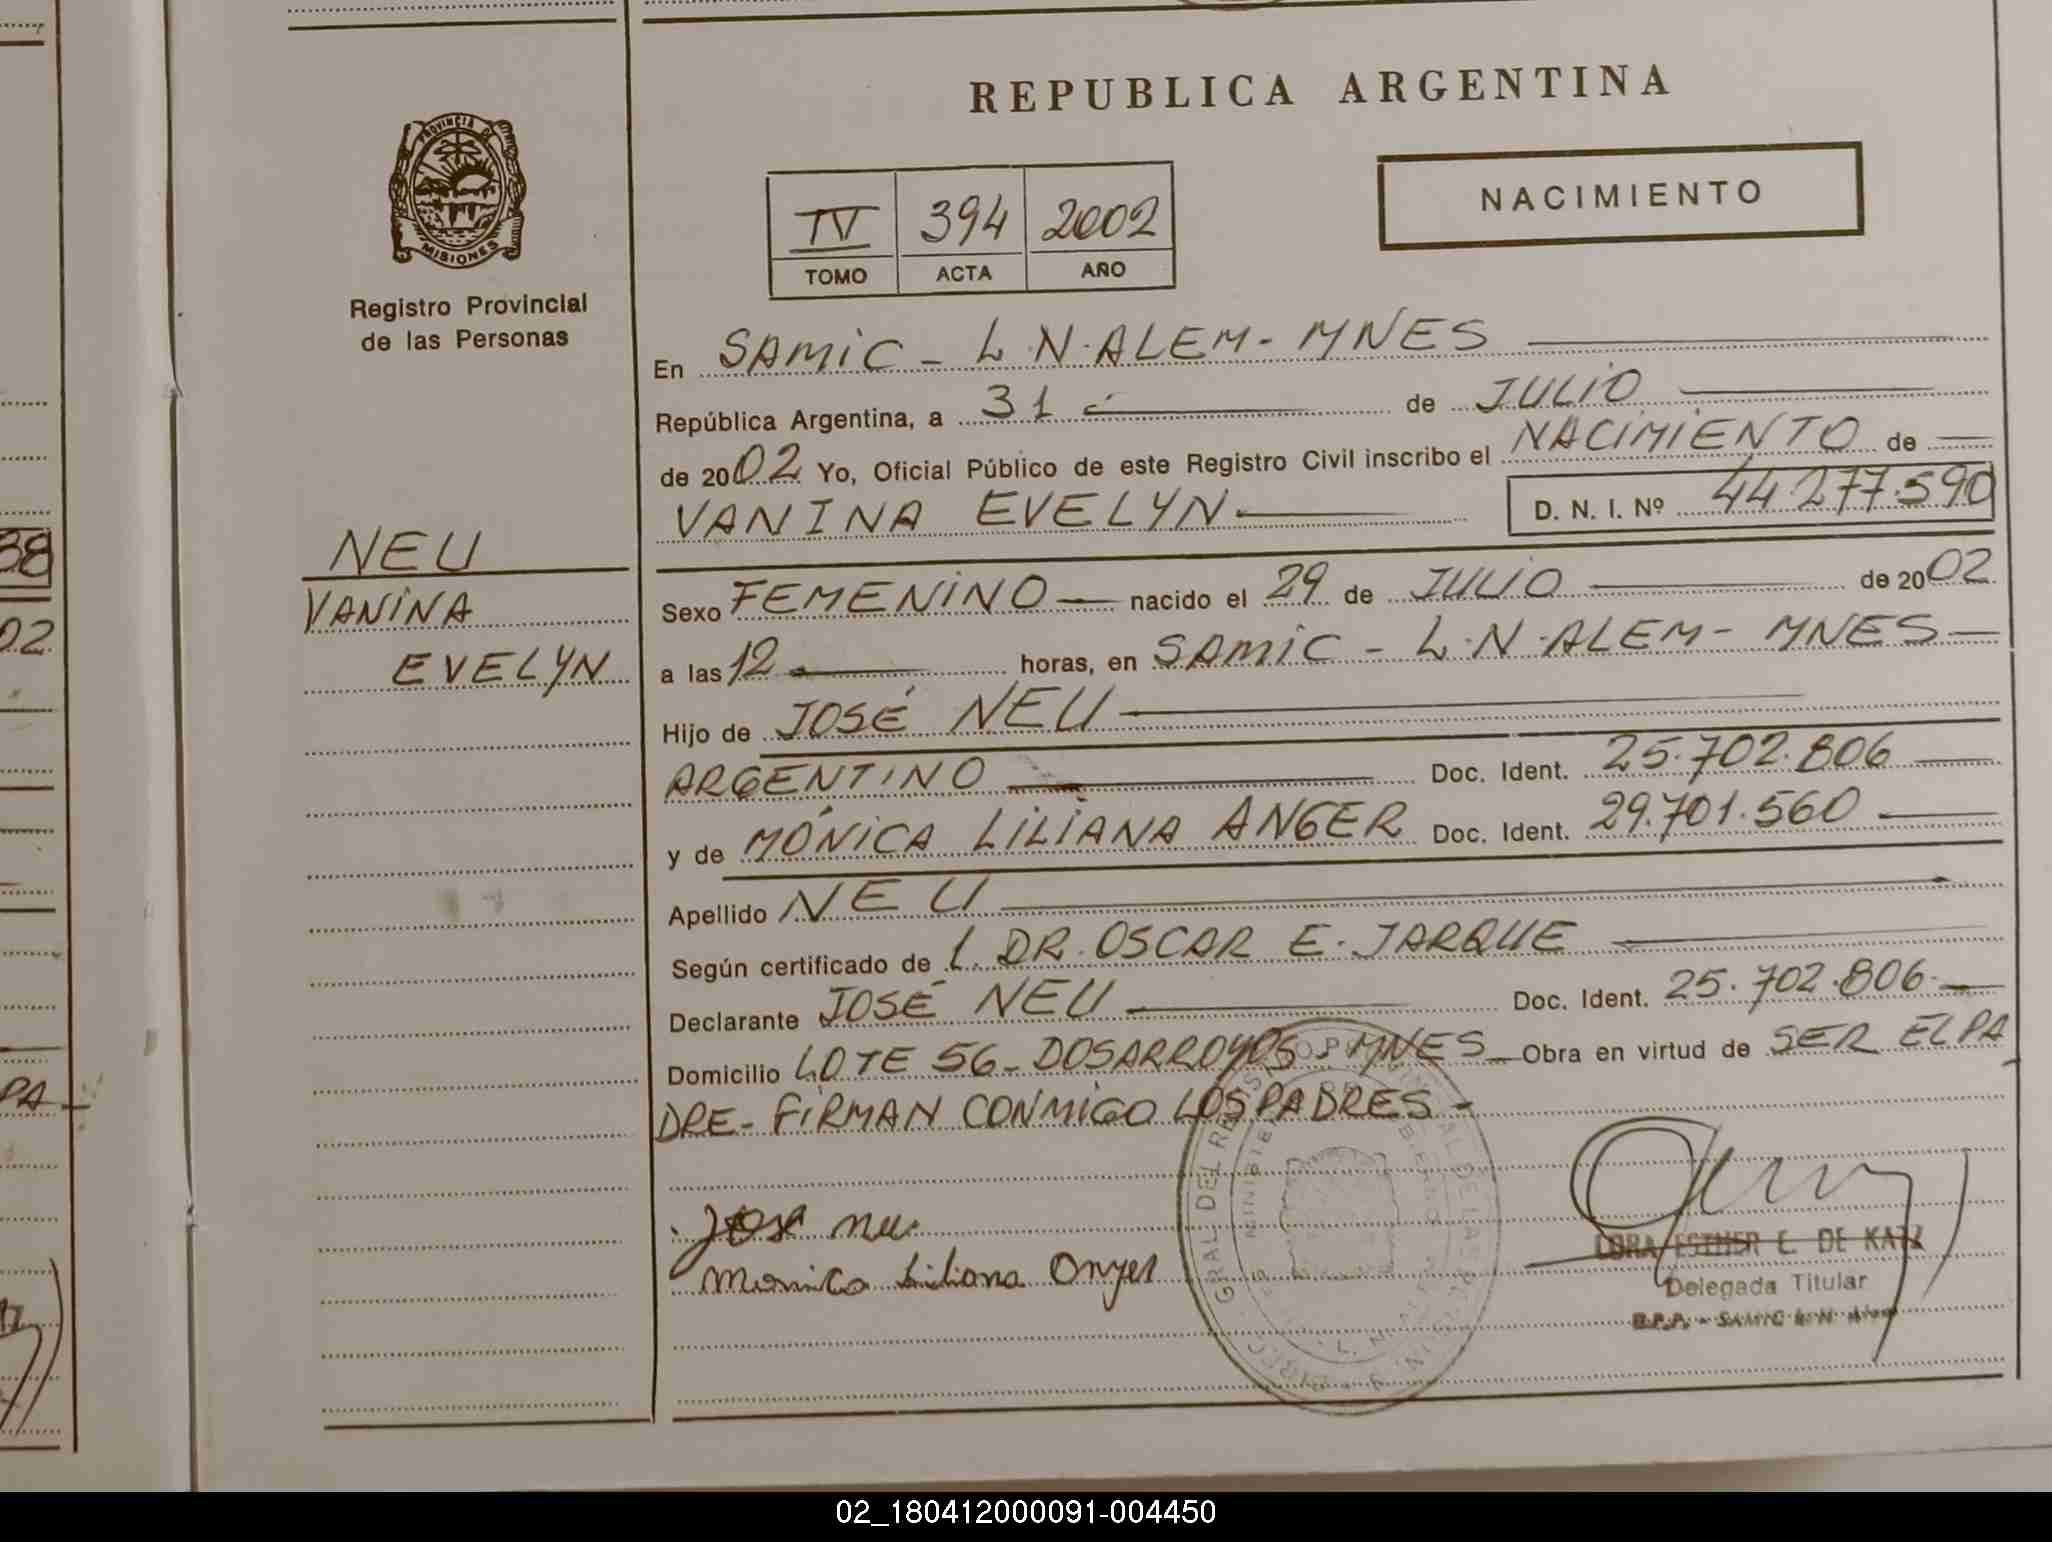 REPUBLICA ARGENTINA
PROVINCIA DE
MISIONES
Registro Provincial
de las Personas
NACIMIENTO
IV 394 2002
TOMO ACTA AÑO
En SAMIC - L.N. ALEM - MNES
República Argentina, a 31 de JULIO
de 2002 Yo, Oficial Público de este Registro Civil inscribo el NACIMIENTO de
VANINA EVELYN D. N. I. Nº 44.277.590
NEU
VANINA
EVELYN
Sexo FEMENINO nacido el 29 de JULIO de 2002
a las 12 horas, en SAMIC - L.N. ALEM - MNES
Hijo de JOSÉ NEU
ARGENTINO Doc. Ident. 25.702.806
y de MÓNICA LILIANA ANGER Doc. Ident. 29.701.560
Apellido NEU
Según certificado de L. DR. OSCAR E. JARQUE
Declarante JOSÉ NEU Doc. Ident. 25.702.806
Domicilio LOTE 56 - DOSARROYOS - MNES Obra en virtud de SER EL PA
DRE - FIRMAN CONMIGO LOS PADRES -
Jose neu
Monica Liliana
ESTHER E. DE KATZ
Delegada Titular
SAMIC L. N. Alem
38
02
PA
02_180412000091-004450